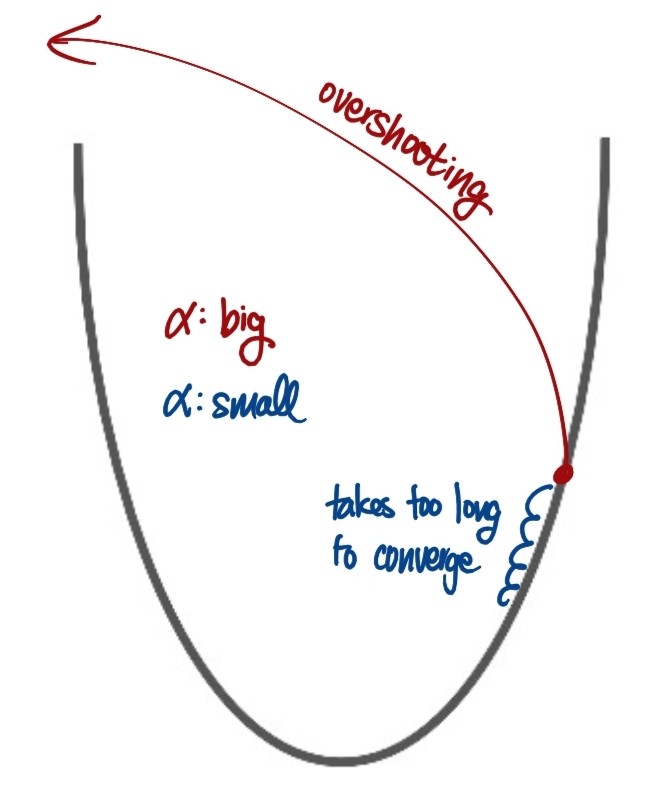 overshooting
α: big
α: small
takes too long
to converge